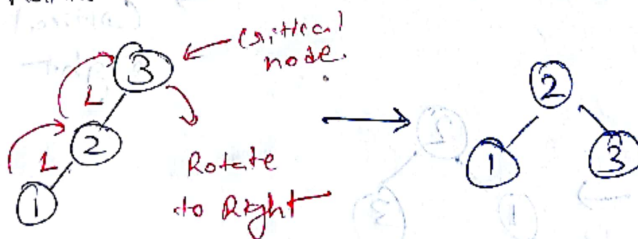 3
Critical
node.
L
2
2
L
Rotate
1
3
to Right
1